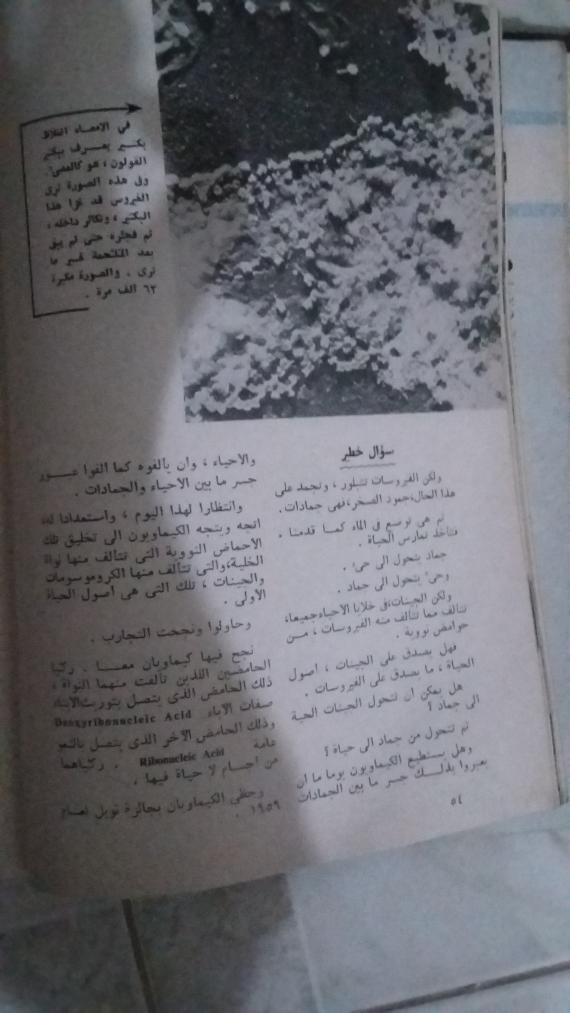 في الامعاء الغلاظ
بكتير يعرف ببكتير
القولون ، هو كالعصى
وفي هذه الصورة ترى
الفيروس قد غزا هذا
البكتير ، وتكاثر داخله ،
ثم فجره حتى لم يبق
بعد الملحمة غير ما
ترى . والصورة مكبرة
٦٢ الف مرة .
سؤال خطير
ولكن الفيروسات تتبلور ، وتجمد على
هذا الحال،جمود الصخر،فهي جمادات.
ثم هى توضع في الماء كما قدمنا ،
فتأخذ تمارس الحياة .
جماد يتحول الى حي .
وحي يتحول الى جماد .
ولكن الجينات،في خلايا الاحياء جميعا،
تتألف مما تتألف منه الفيروسات ، من
حوامض نووية .
فهل يصدق على الجينات ، اصول
الحياة ، ما يصدق على الفيروسات .
هل يمكن ان تتحول الجينات الحية
الى جماد ؟
ثم تتحول من جماد الى حياة ؟
وهل يستطيع الكيماويون يوما ما ان
يعبروا بذلك جسر ما بين الجمادات
والاحياء ، وان يألفوه كما الفوا عبور
جسر ما بين الأحياء والجمادات .
وانتظارا لهذا اليوم ، واستعدادا له،
اتجه ويتجه الكيماويون الى تخليق تلك
الأحماض النووية التى تتألف منها نواة
الخلية،والتى تتألف منها الكروموسومات
والجينات ، تلك التى هى أصول الحياة
الأولى .
وحاولوا ونجحت التجارب .
نجح فيها كيماويان معا . ركبا
الحامضين اللذين تألفت منهما النواة ،
ذلك الحامض الذى يتصل بتوريث الابناء
صفات الآباء Deoxyribonucleic Acid
وذلك الحامض الآخر الذى يتصل بالنمو
عامة Ribonucleic Acid . ركباهما
من اجسام لا حياة فيها .
وحظى الكيماويان بجائزة نوبل لعام
١٩٥٩ .
٥٤